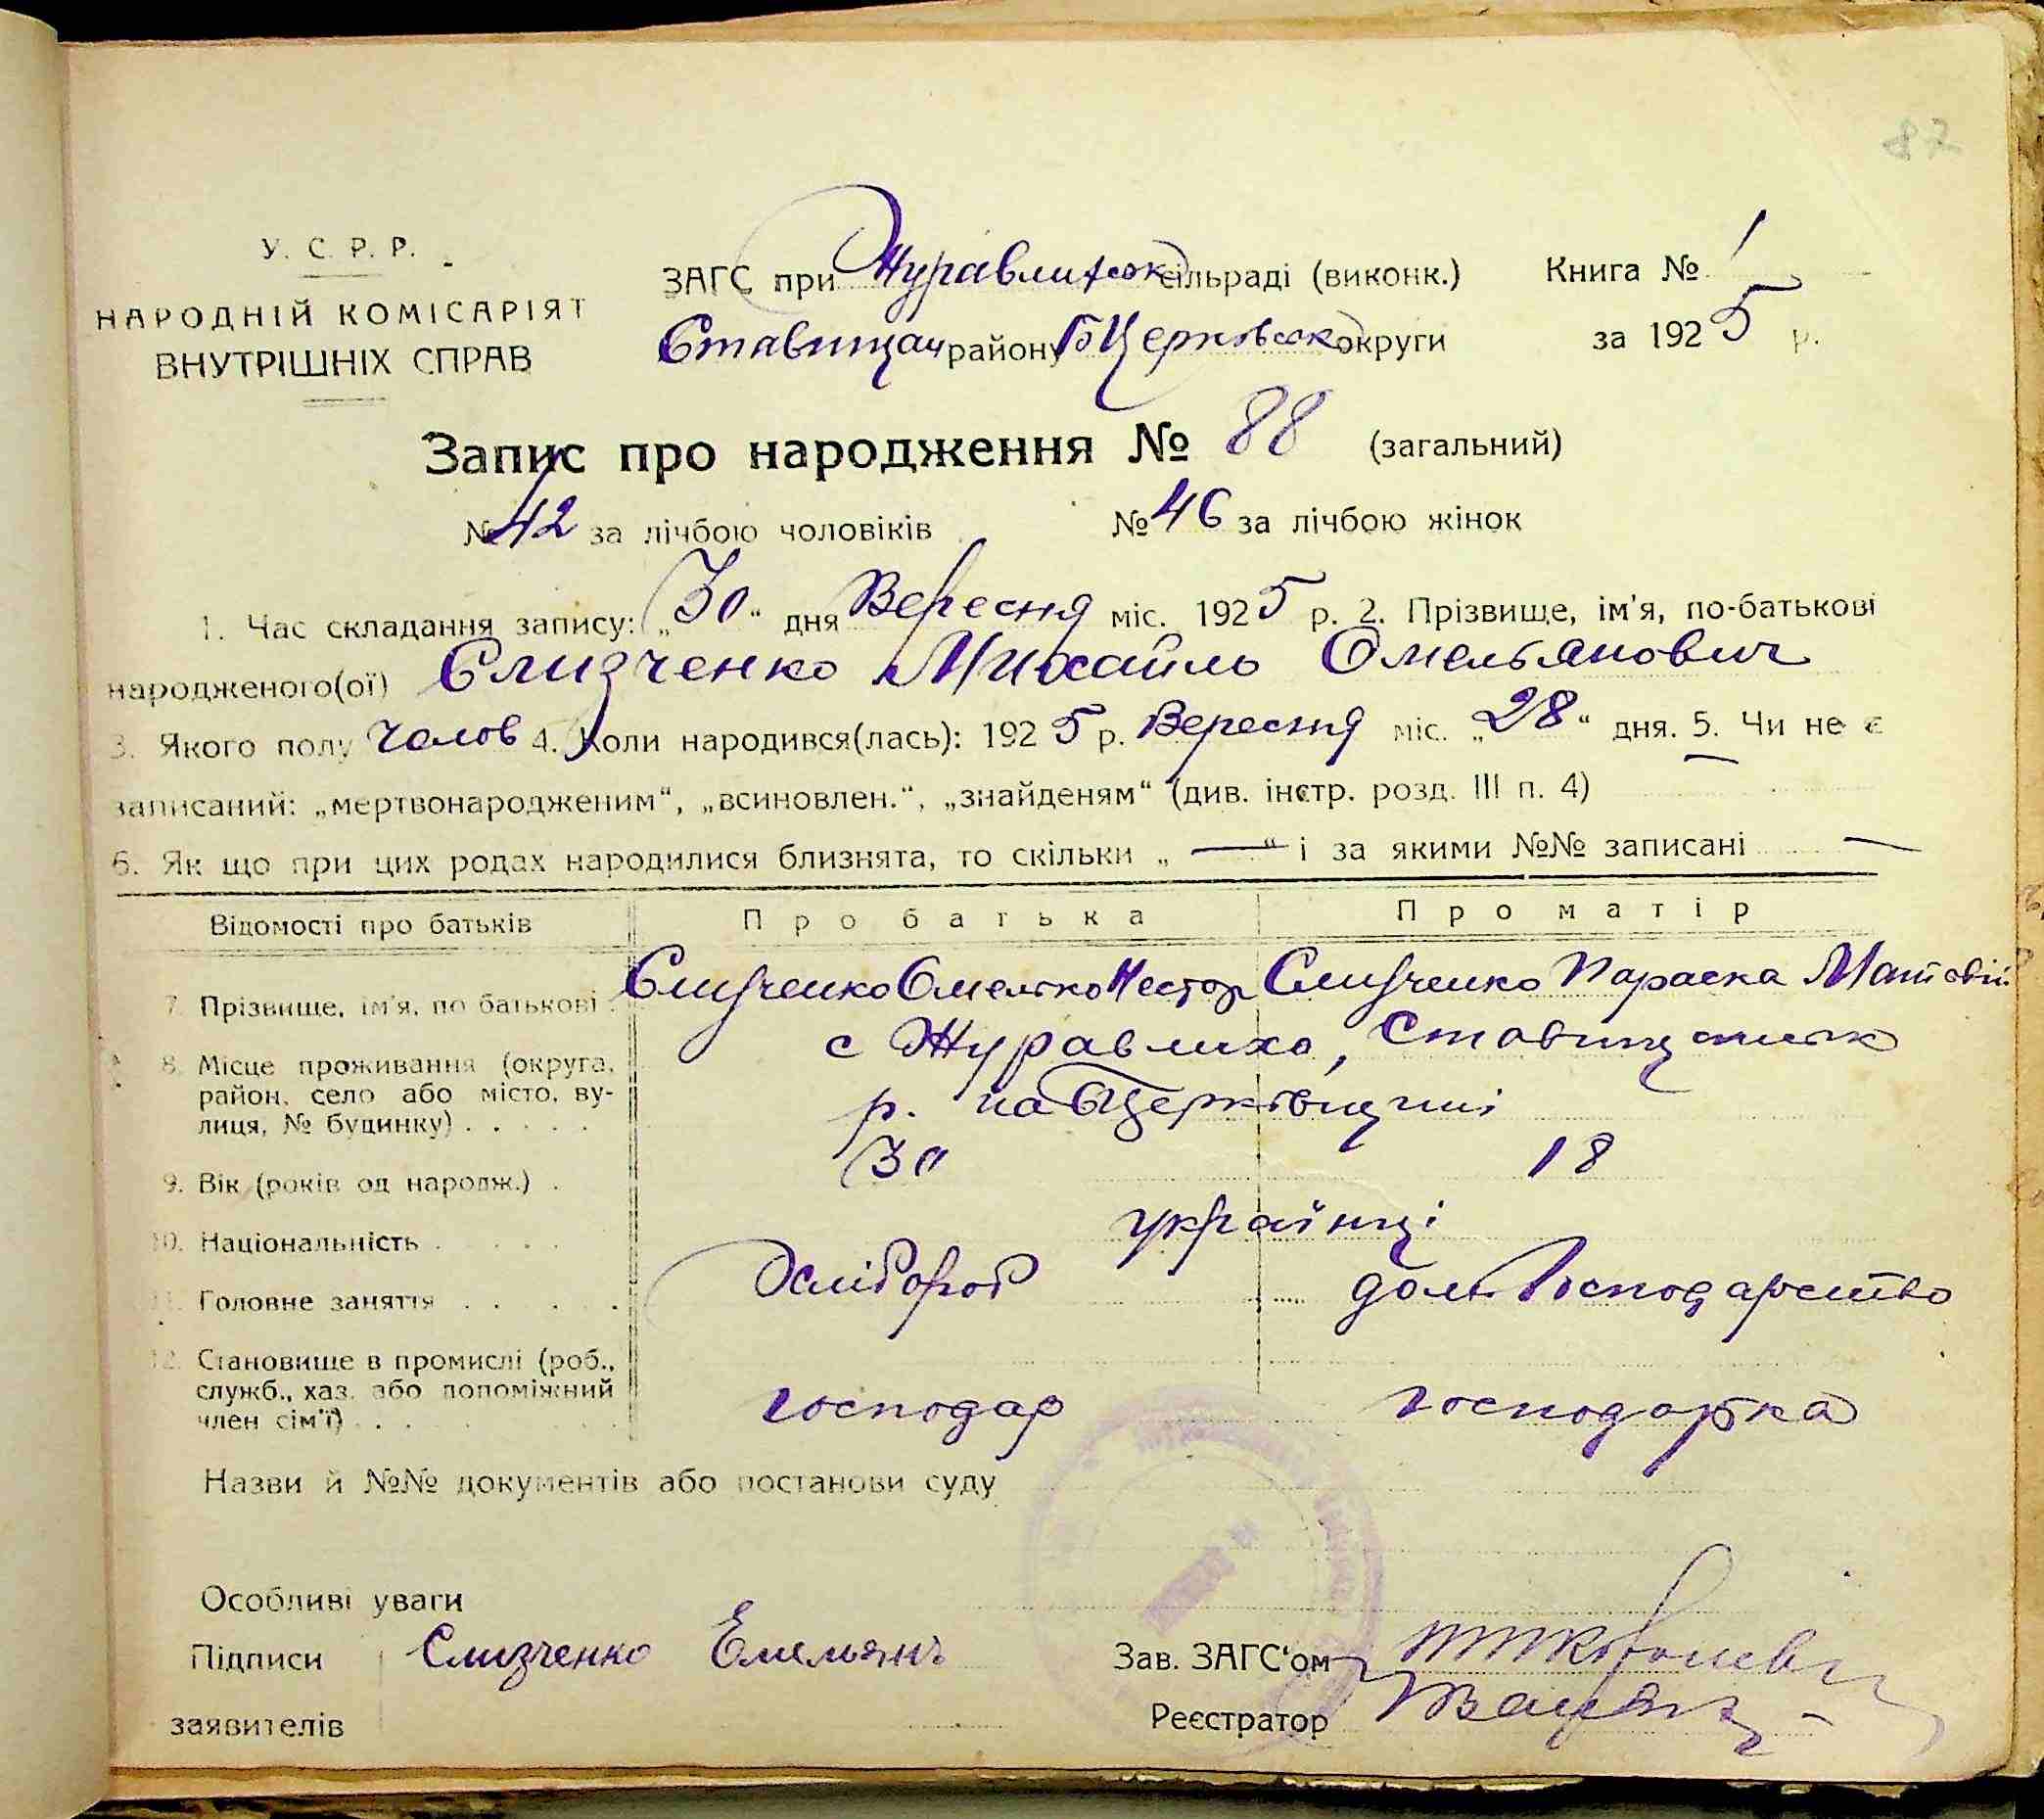 87
У. С. Р. Р.
НАРОДНІЙ КОМІСАРІЯТ
ВНУТРІШНІХ СПРАВ
ЗАГС при Журавлиськ сільраді (виконк.)
Книга № 1
Ставищан району БЦерківськ округи
за 1925 р.
Запис про народження № 88 (загальний)
№ 42 за лічбою чоловіків № 46 за лічбою жінок
1. Час складання запису: „30“ дня Вересня міс. 1925 р. 2. Прізвище, ім'я, по-батькові
народженого(ої) Слизченко Михайль Омельянович
3. Якого полу Чолов 4. Коли народився(лась): 1925 р. Вересня міс. „28“ дня. 5. Чи не є
записаний: „мертвонародженим“, „всиновлен.“, „знайденям“ (див. інстр. розд. III п. 4) —
6. Як що при цих родах народилися близнята, то скільки „—“ і за якими №№ записані —
Відомості про батьків Про батька Про матір
7. Прізвище, ім'я, по батькові Слизченко Омелько Нестор Слизченко Параска Матовій
8. Місце проживання (округа, район, село або місто, вулиця, № будинку) с Журавлиха, Ставищанськ
р. на БЦерківщині
9. Вік (років од народж.) 30 18
10. Національність українці
11. Головне заняття Хлібороб дом. Господарство
12. Становище в промислі (роб.,
служб., хаз. або допоміжний
член сім'ї) господар господарка
Назви й №№ документів або постанови суду
Особливі уваги
Підписи Слизченко Емельянъ
заявителів
Зав. ЗАГС'ом
Реєстратор